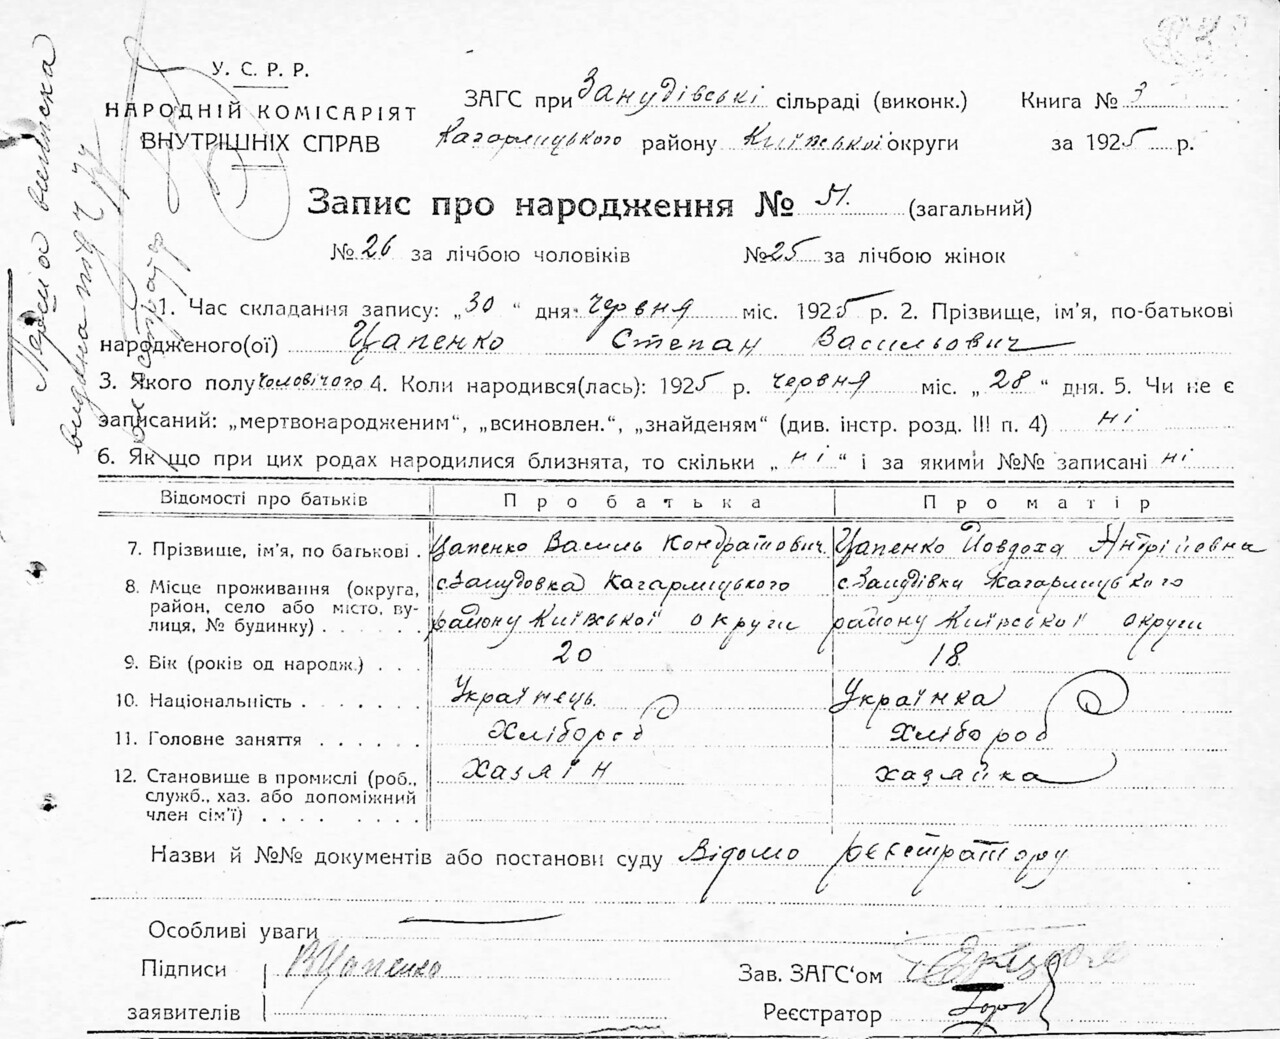 У. С. Р. Р.
НАРОДНІЙ КОМІСАРІЯТ
ВНУТРІШНІХ СПРАВ
ЗАГС при Занудівські сільраді (виконк.) Книга № 3
Кагарлицького району Київської округи за 1925 р.
Запис про народження № 51. (загальний)
№ 26 за лічбою чоловіків №25 за лічбою жінок
1. Час складання запису: „30 “ дня: червня міс. 1925 р. 2. Прізвище, ім'я, по-батькові
народженого(ої) Цапенко Степан Васильович
3. Якого полу чоловічого 4. Коли народився(лась): 1925 р. червня міс. „ 28 “ дня. 5. Чи не є
записаний: „мертвонародженим“, „всиновлен.“, „знайденям“ (див. інстр. розд. III п. 4) ні
6. Як що при цих родах народилися близнята, то скільки „ ні “ і за якими №№ записані ні
Відомості про батьків Про батька Про матір
7. Прізвище, ім'я, по батькові . Цапенко Василь Кондратович. Цапенко Йовдоха Антріївна
8. Місце проживання (округа, с. Кагарлицького с. Кагарлицького
район, село або місто, ву-
лиця, № будинку) . . . . . . району Київської округи району Київської округи
9. Вік (років од народж.) . . . 20 18
10. Національність . . . . . . . Українець. Українка
11. Головне заняття . . . . . . Хлібороб Хлібороб
12. Становище в промислі (роб., Хазяїн хазяйка
служб., хаз. або допоміжний
член сім'ї) . . . . . . . .
Назви й №№ документів або постанови суду Відомо реєстратору
Особливі уваги
Підписи ВЦапенко Зав. ЗАГС‘ом
заявителів Реєстратор
Перша виписка
видана